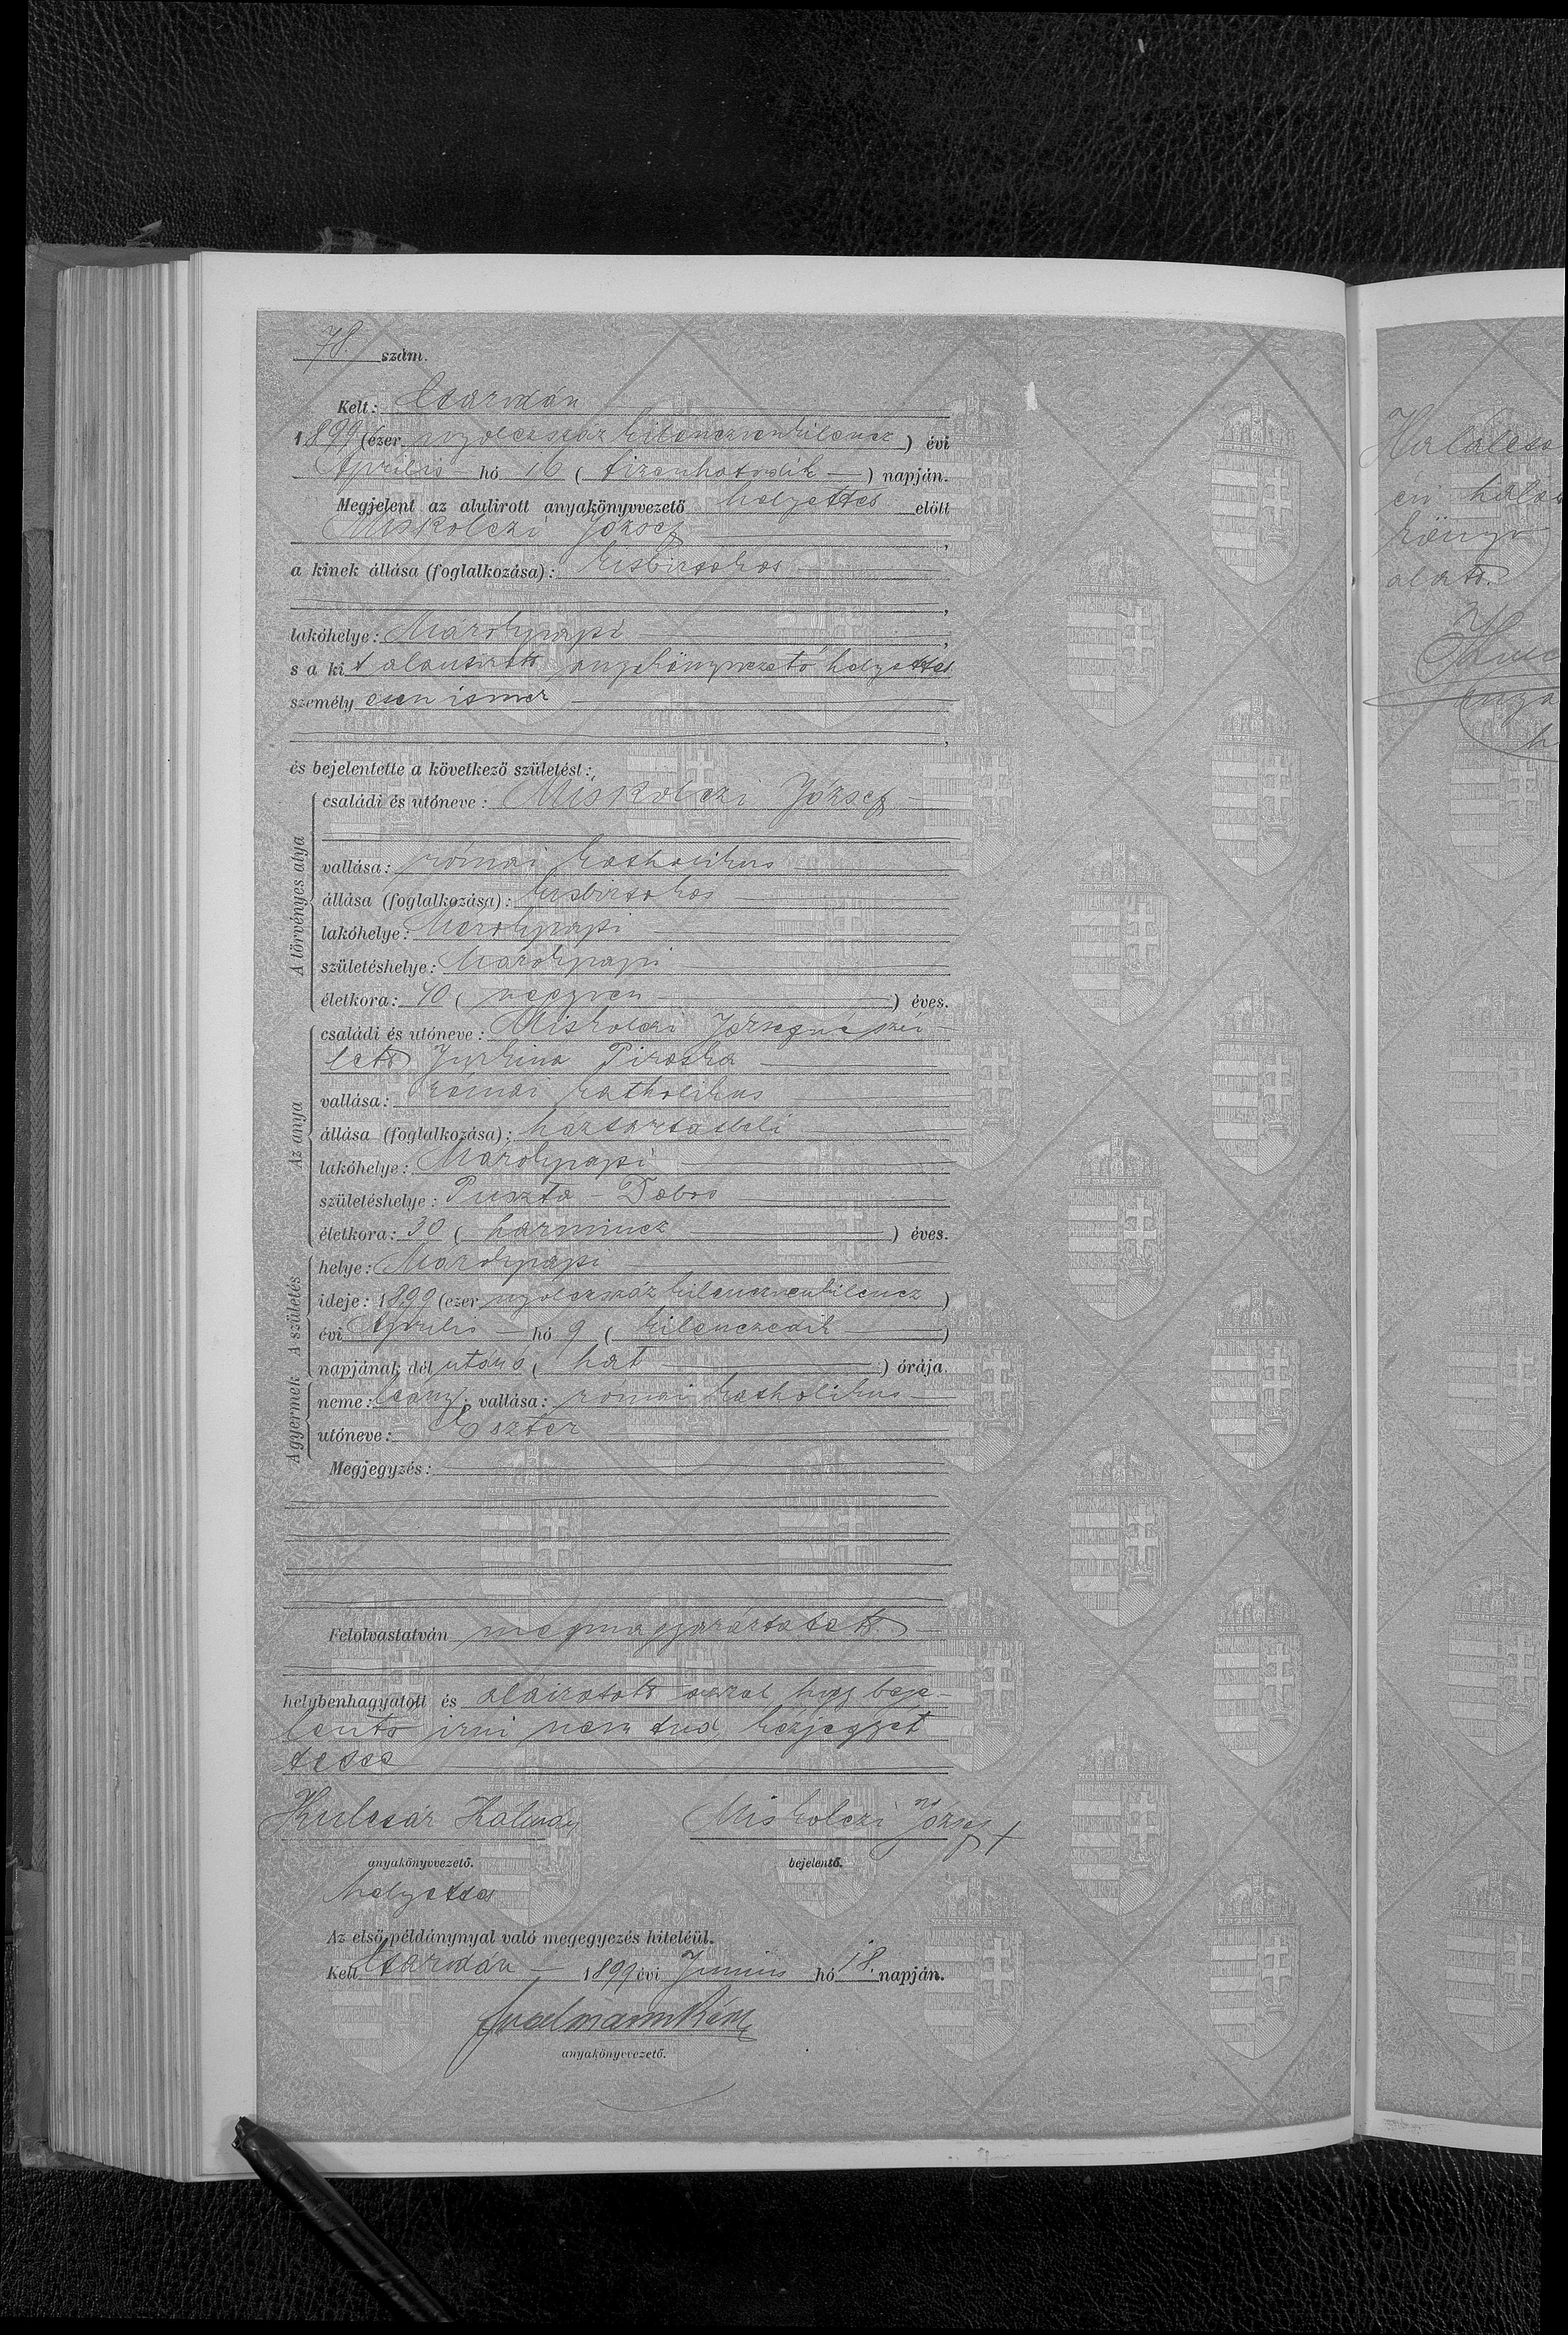 78. szám.
Kelt: Csarodán
1899 (ezer nyolczszáz kilenczvenkilencz) évi
Április hó 16 (tizenhatodik) napján.
Megjelent az alulirott anyakönyvvezető helyettes előtt
Miskolczi József,
a kinek állása (foglalkozása): kisbirtokos
lakóhelye: Marokpapi,
s a kit alantirott anyakönyvvezető helyettes
személyesen ismer
és bejelentette a következő születést:
A törvényes atya
családi és utóneve: Miskolczi József
vallása: római katholikus
állása (foglalkozása): kisbirtokos
lakóhelye: Marokpapi
születéshelye: Marokpapi
életkora: 40 (negyven) éves.
Az anya
családi és utóneve: Miskolczi Józsefné szü-
letett Jurkina Piroska
vallása: római katholikus
állása (foglalkozása): háztartásbeli
lakóhelye: Marokpapi
születéshelye: Puszta-Dobos
életkora: 30 (harmincz) éves.
A születés
helye: Marokpapi
ideje: 1899 (ezer nyolczszáz kilenczvenkilencz)
évi Április hó 9 (kilenczedik)
napjának dél utáni (hat) órája.
A gyermek
neme: leány; vallása: római katholikus
utóneve: Eszter
Megjegyzés:
Felolvastatván megmagyaráztatott
helybenhagyatott és aláiratott azzal, hogy beje-
lentő irni nem tud, kézjegyet
tesz
Kulcsár Kálmán Miskolczi József +
anyakönyvvezető. bejelentő.
helyettes
Az első példánynyal való megegyezés hiteléül.
Kelt Csarodán 1899 évi Junius hó 18. napján.
anyakönyvvezető.
könyv
alatt.